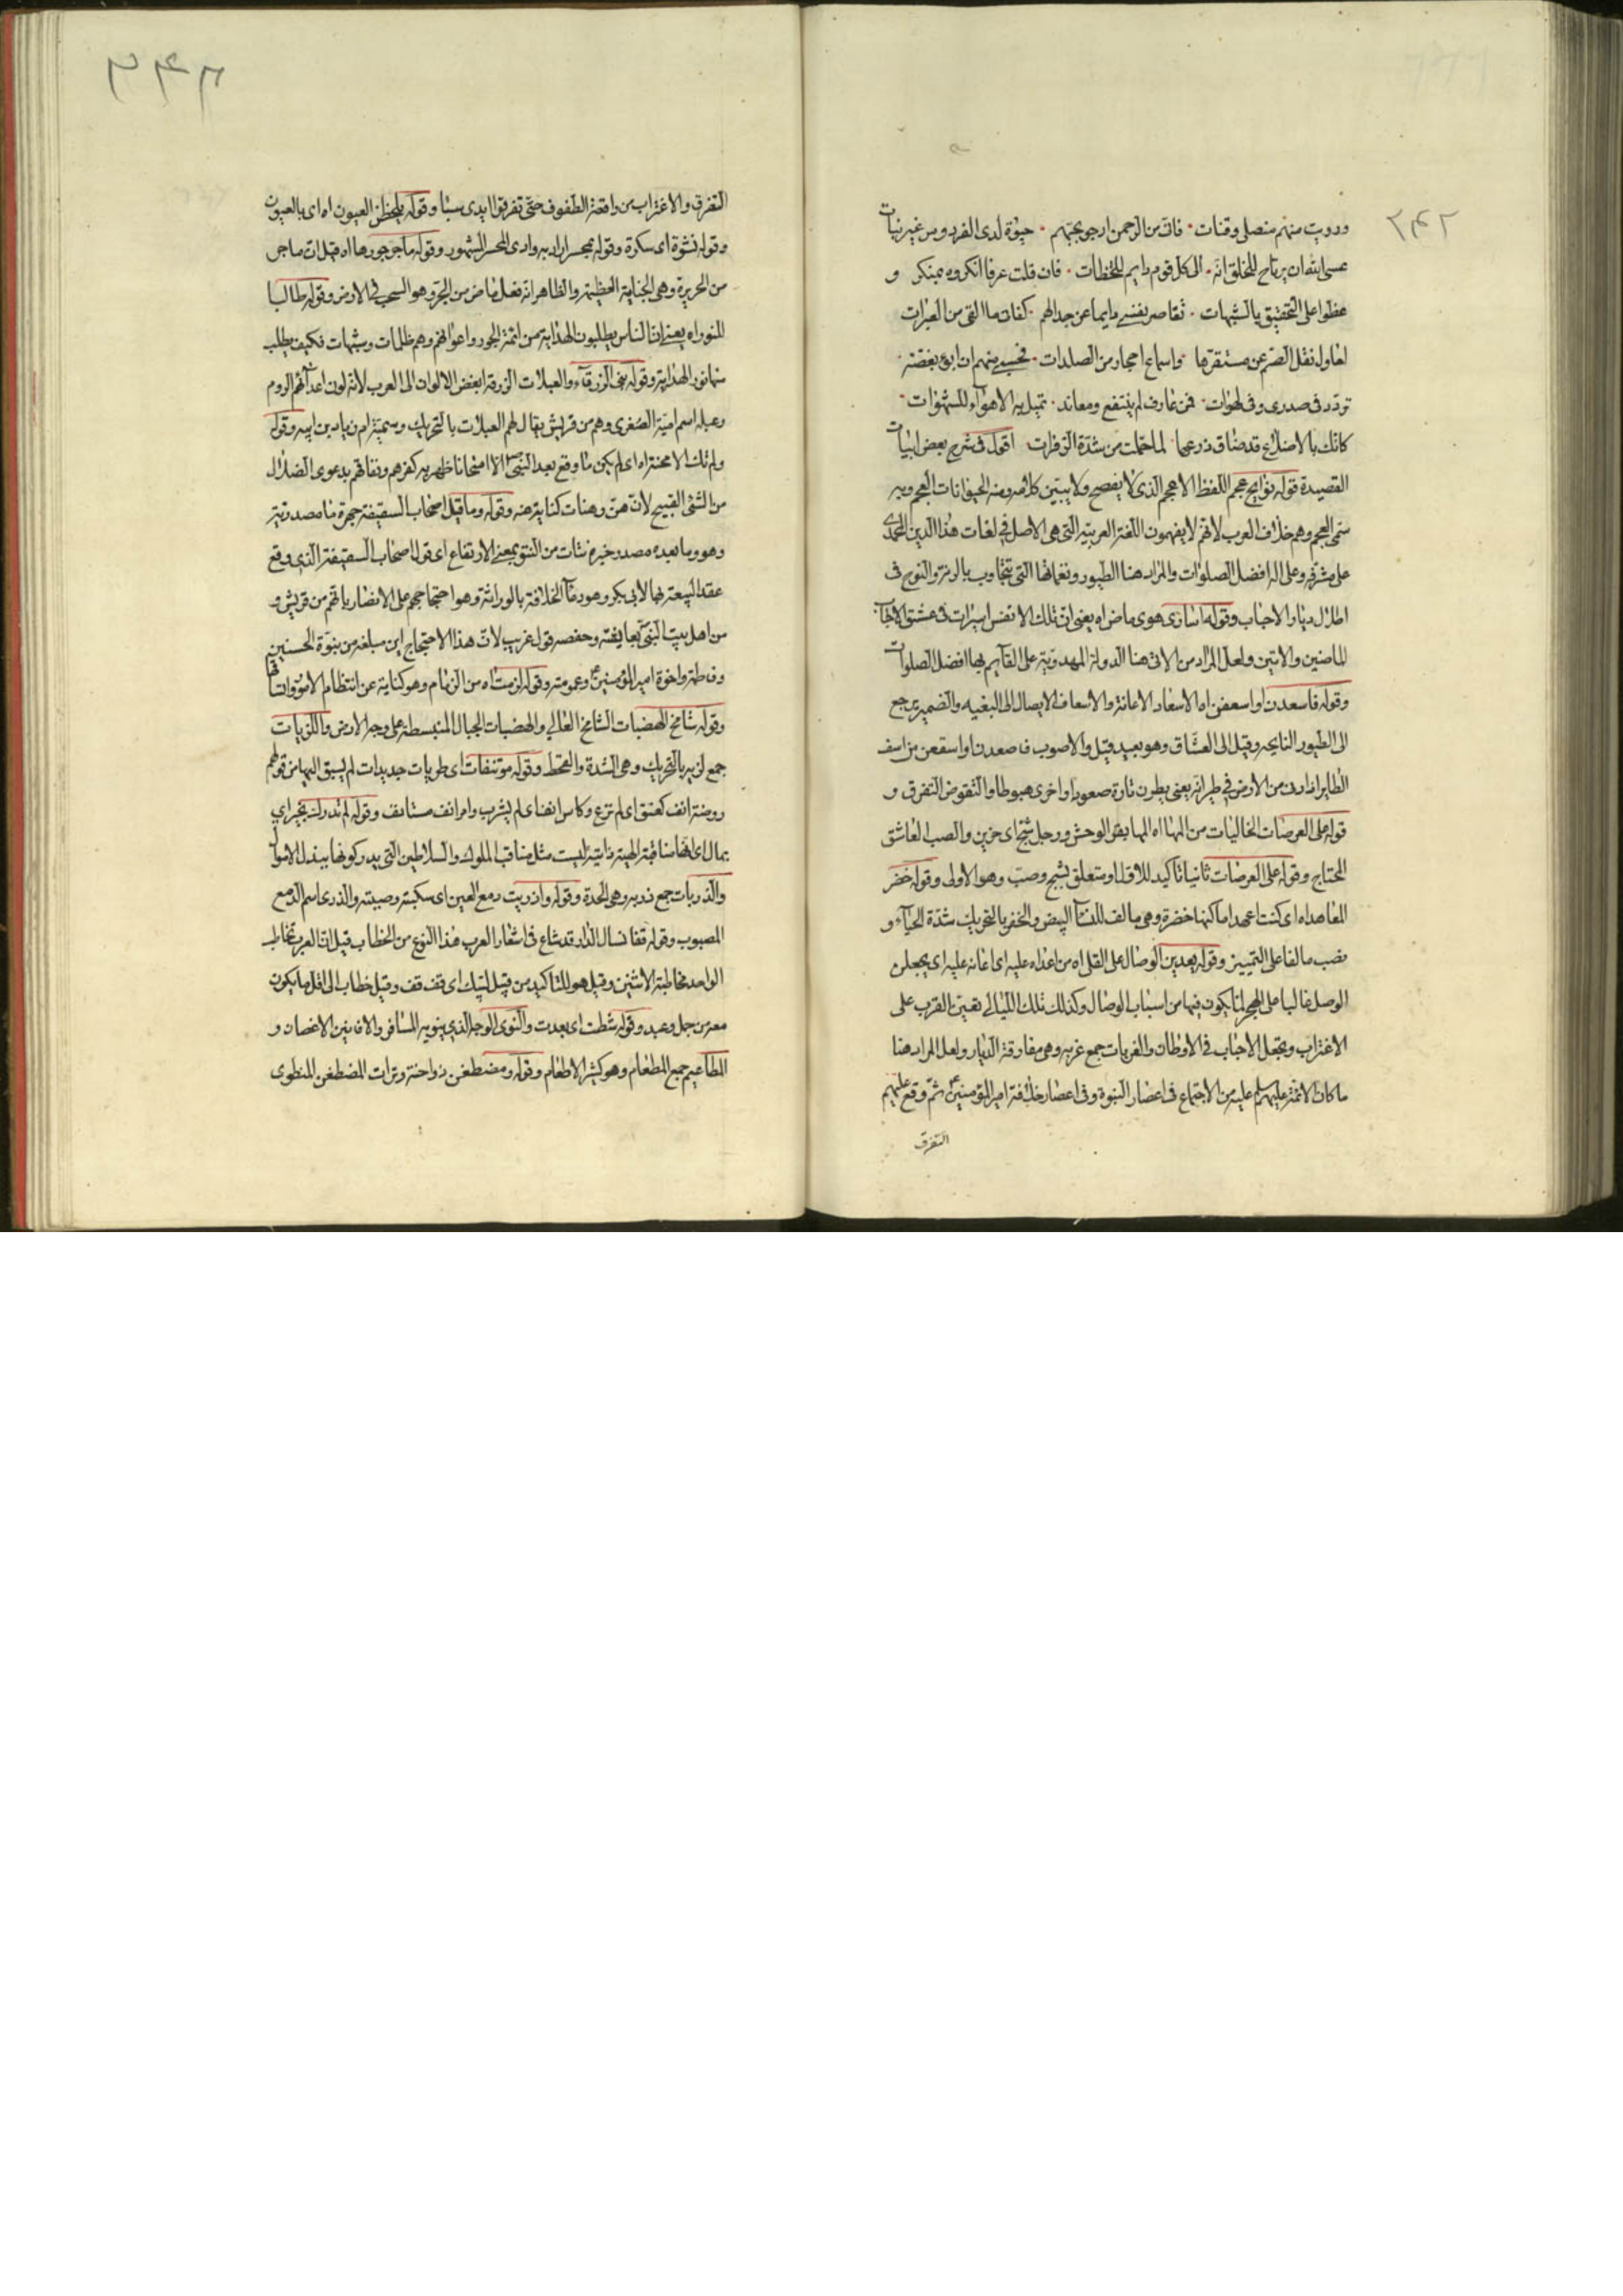 ٢٤٢
ورويت منهم منصلي وقنات فان من الرحمن ارجو بحبهم حيوة لدى الفردوس غير بتات
عسى الله ان يرتاح للخلق انه الى كل قوم دايم اللحظات فان قلت عرفا انكروه بمنكر و
غطوا على التحقيق بالشبهات تقاصر نفسي دايما عن جدالهم كفاني ما القى من العبرات
احاول نقل الصم عن مستقرها واسماع احجار من الصلدات فحسبي منهم ان ابوء بغصة
تردد في صدري وفي لهوات فمن عارف لم ينتفع ومعاند تميل به الاهواء للشهوات
كانك بالاضلاع قد ضاق ذرعها لما حملت من شدة الزفرات اقول في شرح بعض ابيات
القصيدة قوله نوايح عجم اللفظ الاعجم الذي لا يفصح ولا يبين كلامه ومنه الحيوانات العجم وبه
سمى العجم وهم خلاف العرب لانهم لا يفهمون اللغة العربية التي هي الاصل في لغات هذا الدين المحمدى
على مشرفه وعلى اله افضل الصلوات والمراد هنا الطيور ونغماتها التي تتجاوب بالرنة والنوح في
اطلال ديار الاحباب وقوله اسارى هوى ماض اه يعني ان تلك الانفس اسيرات في عشق الاحباب
الماضين والاتين ولعل المراد من الاتي هنا الدولة المهدوية على القايم بها افضل الصلوات
وقوله فاسعدن او اسعفن اه الاسعاد الاعانة والاسعاف الايصال الى البغيه والضمير يرجع
الى الطيور النايحه وقيل الى العشاق وهو بعيد قيل والاصوب فاصعدن او اسففن من اسف
الطاير اذا دنى من الارض في طيرانه يعني يطرن تارة صعودا واخرى هبوطا والتقوض التفرق و
قوله على العرصات الخاليات من المها اه المها بقر الوحش ورجل شج اى حزين والصب العاشق
المحتاج وقوله على العرصات ثانيا تاكيد للاول او متعلق بشج وصب وهو الاولى وقوله خضر
المعاهد اه اى كنت اعهد اماكنها خضرة وهي مالف للنساء البيض والخفر بالتحريك شدة الحياء و
نصب مالفا على التمييز وقوله يعدين الوصال على القلى اه من اعداه عليه اى اعانه عليه اى يجعلن
الوصل غالبا على الهجر لما يكون فيها من اسباب الوصال وكذلك تلك الليالي يعين القرب على
الاغتراب ويجعل الاحباب في الاوطان والغربات جمع غربه وهي مفارقة الديار ولعل المراد هنا
ما كان الائمة عليهم السلم عليه من الاجتماع في اعصار النبوة وفي اعصار خلافة امير المؤمنين ثم وقع عليهم
التفرق
٢٤٣
التفرق والاغتراب من واقعة الطفوف حتى تفرقوا ايدى سبا وقوله يلحظن العيون اه اى بالعيون
وقوله نشوة اى سكرة وقوله بمحسر اراد به وادى المحسر المشهور وقوله ما جر جورها اه قيل ان ما جر
من الجريرة وهي الجناية العظيمة والظاهر انه فعل ماض من الجر وهو السحب في الارض وقوله طالبا
للنور اه يعني ان الناس يطلبون الهداية من ائمة الجور واعوانهم وهم ظلمات وشبهات فكيف يطلب
منها نور الهداية وقوله بني الزرقاء والعبلات الزرقة ابغض الالوان الى العرب لانه لون اعدائهم الروم
وعبله اسم امية الصغرى وهم من قريش يقال لهم العبلات بالتحريك وسمية ام زياد بن ابيه وقوله
ولم تك الا محنة اه اى لم يكن ما وقع بعد النبي الا امتحانا ظهر به كفرهم ونفاقهم بدعوى الضلال
من الشئ القبيح لان هن وهنات كناية عنه وقوله وما قيل اصحاب السقيفة جهرة ما مصدرية
وهو وما بعده مصدر خبره نتات من النتو بمعنى الارتفاع اى قول اصحاب السقيفة الذي وقع
عقد البيعة بها لابي بكر وهو دعاء الخلافة بالوراثة وهو احتجاجهم على الانصار بانهم من قريش و
من اهل بيت النبي بعايشة وحفصه قول غريب لان هذا الاحتجاج اين مبلغه من بنوة الحسنين
وفاطمة واخوة امير المؤمنين وعمومته وقوله لزمت اه من الزمام وهو كناية عن انتظام الامور واتساقها
وقوله شامخ الهضبات الشامخ العالي والهضبات الجبال المنبسطة على وجه الارض واللزبات
جمع لزبه بالتحريك وهي الشدة والقحط وقوله موتنفات اى طريات جديدات لم يسبق اليها من قولهم
روضة انف كعنق اى لم ترع وكاس انف اى لم يشرب وامر انف مستانف وقوله لم تدرك بخير اي
بمال اى انها مناقبة الهية ذاتية ليست مثل مناقب الملوك والسلاطين التي يدركونها ببذل الاموال
والذربات جمع ذربه وهي الحدة وقوله واذريت دمع العين اى سكبته وصببته والذرى اسم الدمع
المصبوب وقوله قفا نسال الدار قد شاع في اشعار العرب هذا النوع من الخطاب قيل ان العرب تخاطب
الواحد مخاطبة الاثنين وقيل هو للتاكيد من قبيل لبيك اى قف قف وقيل خطاب الى اقل ما يكون
معه من جمل وعبد وقوله شطت اى بعدت والنوى الوجه الذي ينويه المسافر والافانين الاغصان و
المطاعيم جمع المطعام وهو كثير الاطعام وقوله ومضطغن ذو احنة وترات المضطغن المنطوى